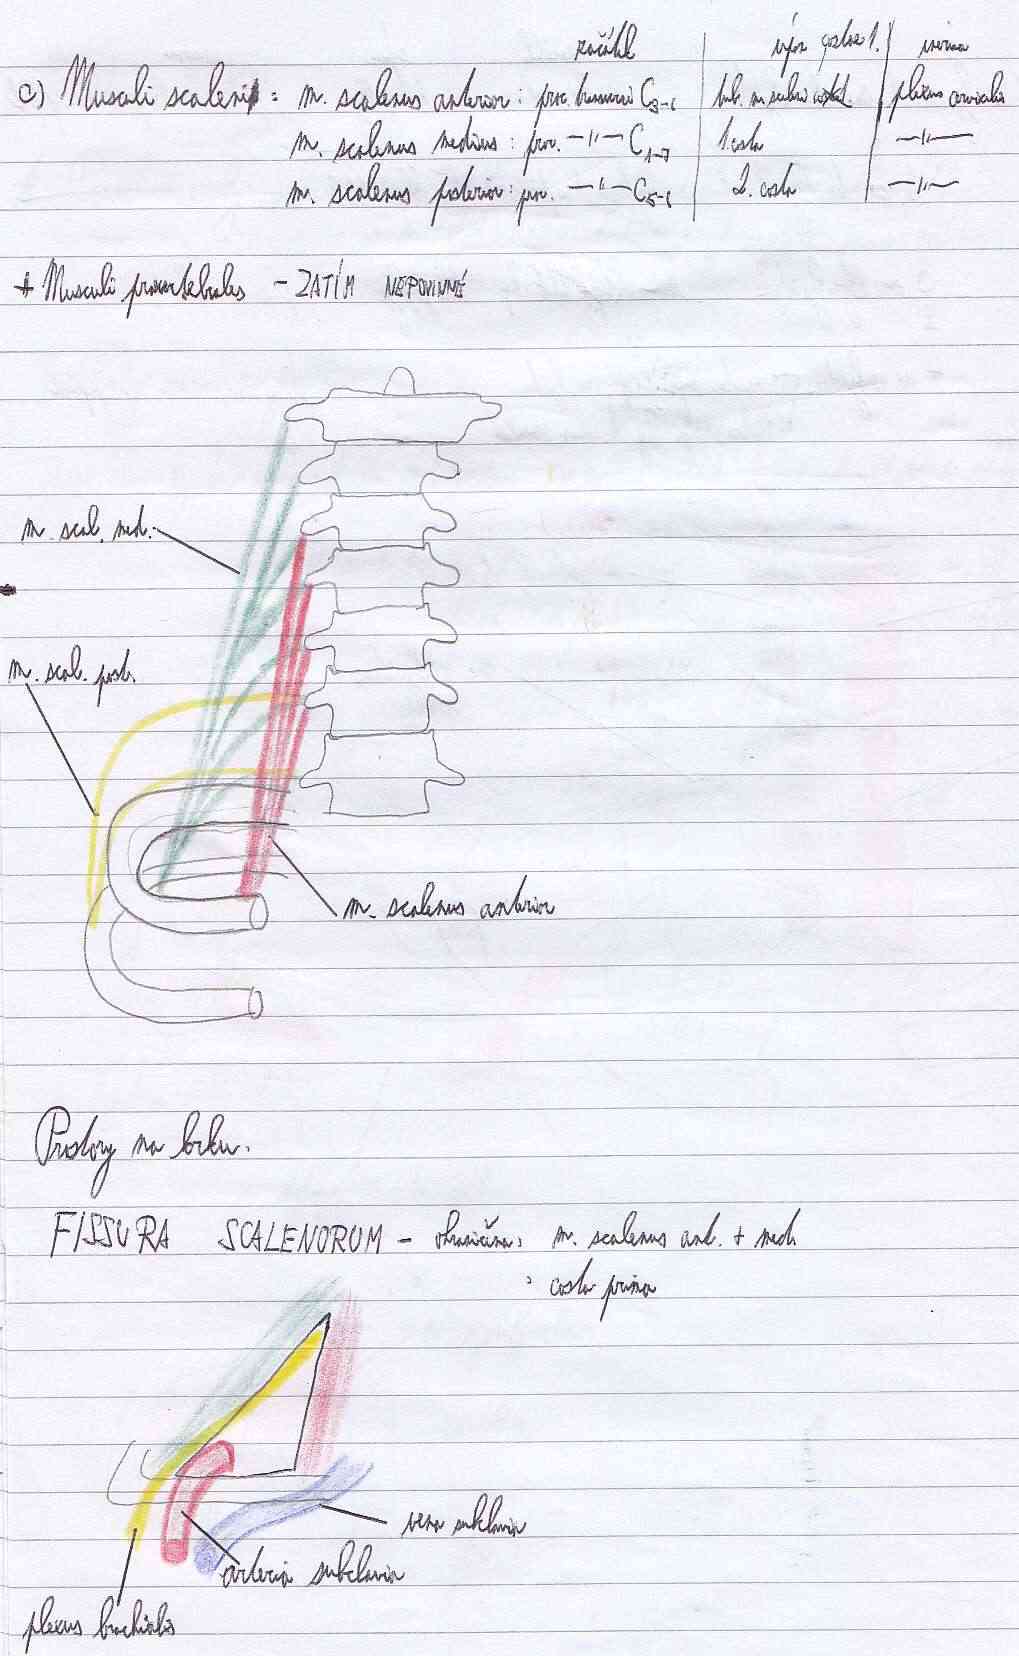 začátek úpon costae 1. inerva
c) Musculi scaleni: m. scalenus anterior: proc. transversi C3-6 tub. m. scaleni plexus cervicalis
m. scalenus medius: proc. —〃— C1-7 1. costa —〃—
m. scalenus posterior: proc. —〃— C5-6 2. costa —〃—
+ Musculi praevertebrales - ZATÍM NEPOVINNÉ
m. scal. med.
m. scal. post.
m. scalenus anterior
Prostory na krku.
FISSURA SCALENORUM - ohraničena: m. scalenus ant. + med.
: costa prima
vena subclavia
arteria subclavia
plexus brachialis